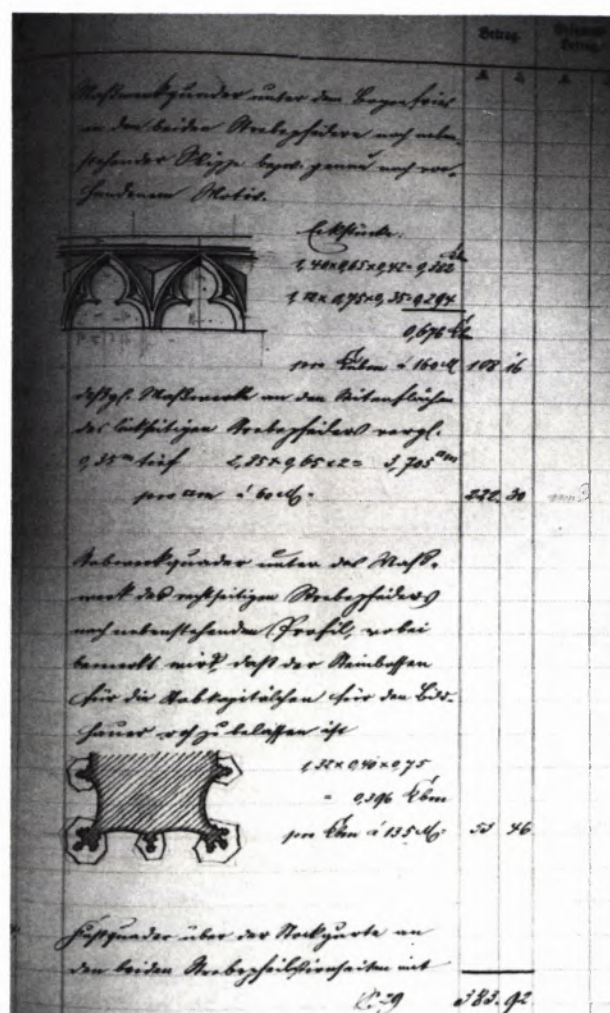 Betrag Gesammt-Betrag
Maßwerkquader unter dem Bogenfries
an den beiden Strebepfeilern nach neben-
stehender Skizze bezw. genau nach vor-
handenem Motiv.
Eckstücke:
1,40 x 0,65 x 0,42 = 0,382 Cbm
1,12 x 0,75 x 0,35 = 0,294
0,676 Cbm
pro Cubm á 160 M 108 16
deßgl. Maßwerk an den Seitenflächen
des linkseitigen Strebepfeilers vergl.
0,35 m tief 2,85 x 0,65 x 2 = 3,705 qm
pro qm á 60 M. 222. 30
Stabwerkquader unter das Maß-
werk des rechtseitigen Strebepfeilers
nach nebenstehendem Profil, wobei
bemerkt wird, daß der Steinbossen
für die Stabkapitälchen für den Bild-
hauer roh zu belassen ist
1,32 x 0,40 x 0,75
= 0,396 Cbm
pro Cbm á 135 M. 53 46
Fußquader über der Stockgurte an
den beiden Strebepfeilerstirnseiten mit
383. 92